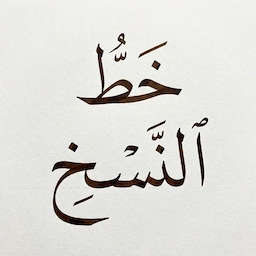 خَطُّ
ٱلنَّسْخِ